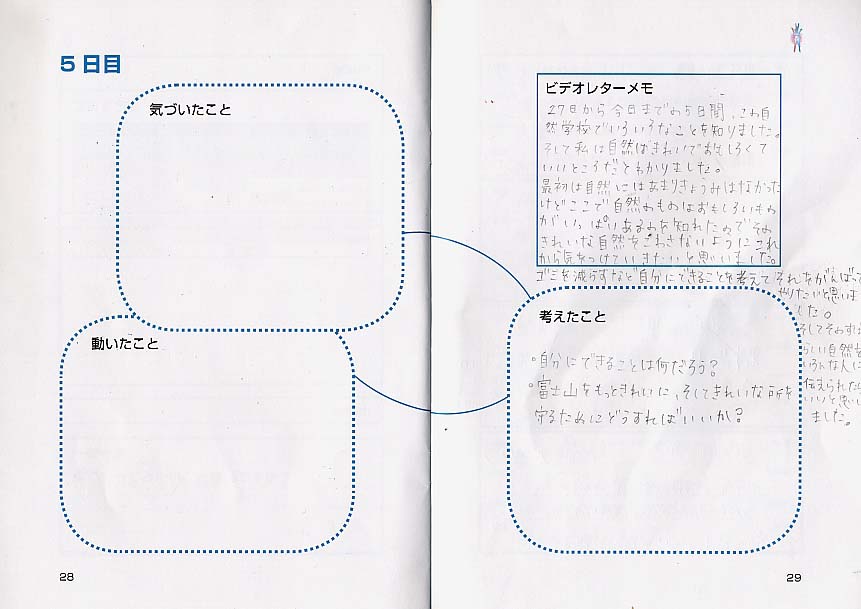 5日目
気づいたこと
動いたこと
28
ビデオレターメモ
27日から今日までの5日間、この自
然学校でいろいろなことを知りました。
そして私は自然はきれいでおもしろくて
いいところだとわかりました。
最初は自然にはあまりきょうみはなかった
けどここで自然のものはおもしろいもの
がいっぱいあるのを知れたのでその
きれいな自然をこわさないようにこれ
から気をつけていきたいと思いました。
ゴミを減らすなど自分にできることを考えてそれをがんばって
やりたいと思いま
した。
そしてそのすば
らしい自然を
いろんな人に
伝えられたら
いいと思い
ました。
考えたこと
・自分にできることは何だろう?
・富士山をもっときれいに、そしてきれいな所を
守るためにどうすればいいか?
29